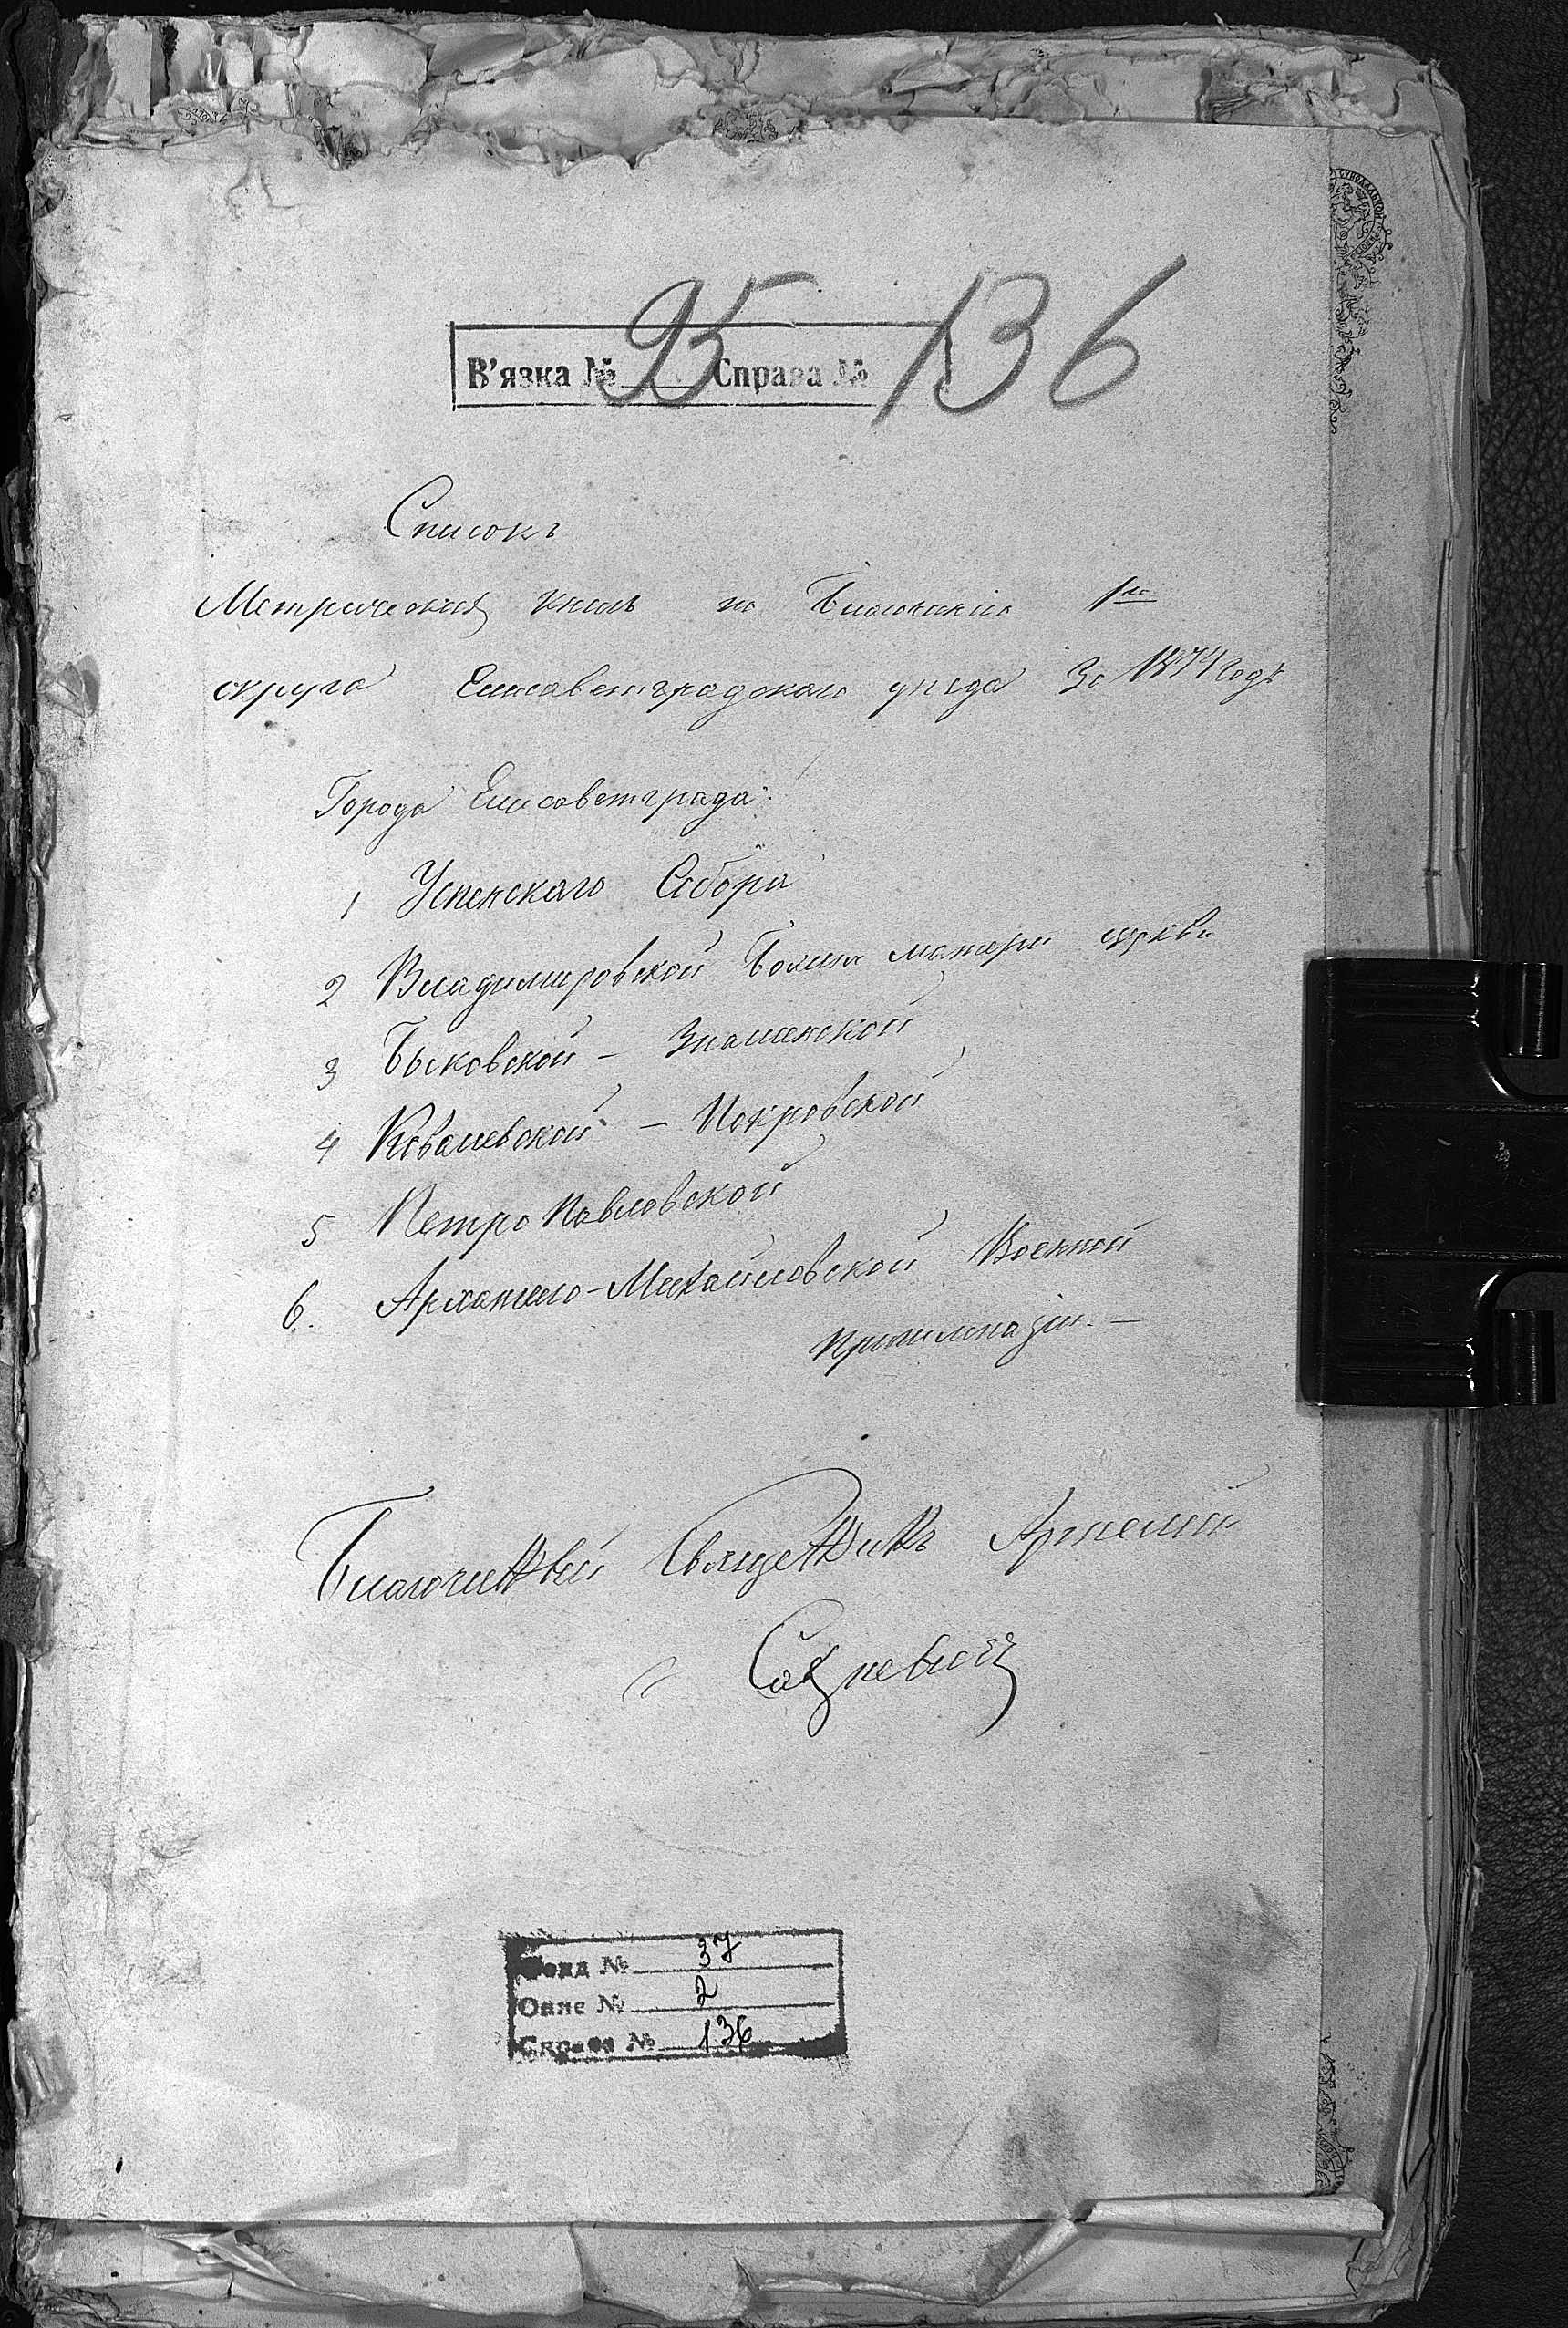 В'язка № 95 Справа № 136
Списокъ
Метрическихъ книгъ по Благочинію 1го
округа Елисаветградскаго уѣзда За 1874 Годъ
Города Елисаветграда:
1 Успенскаго Собора
2 Владимировской Божіей матери церкви
3 Быковской - Знаменской
4 Ковалевской - Покровской
5 Петро Павловской
6. Архангело-Михайловской Военной
прогимназіи. —
Благочинный Священникъ
Фонд № 37
Опис № 2
Справа № 136